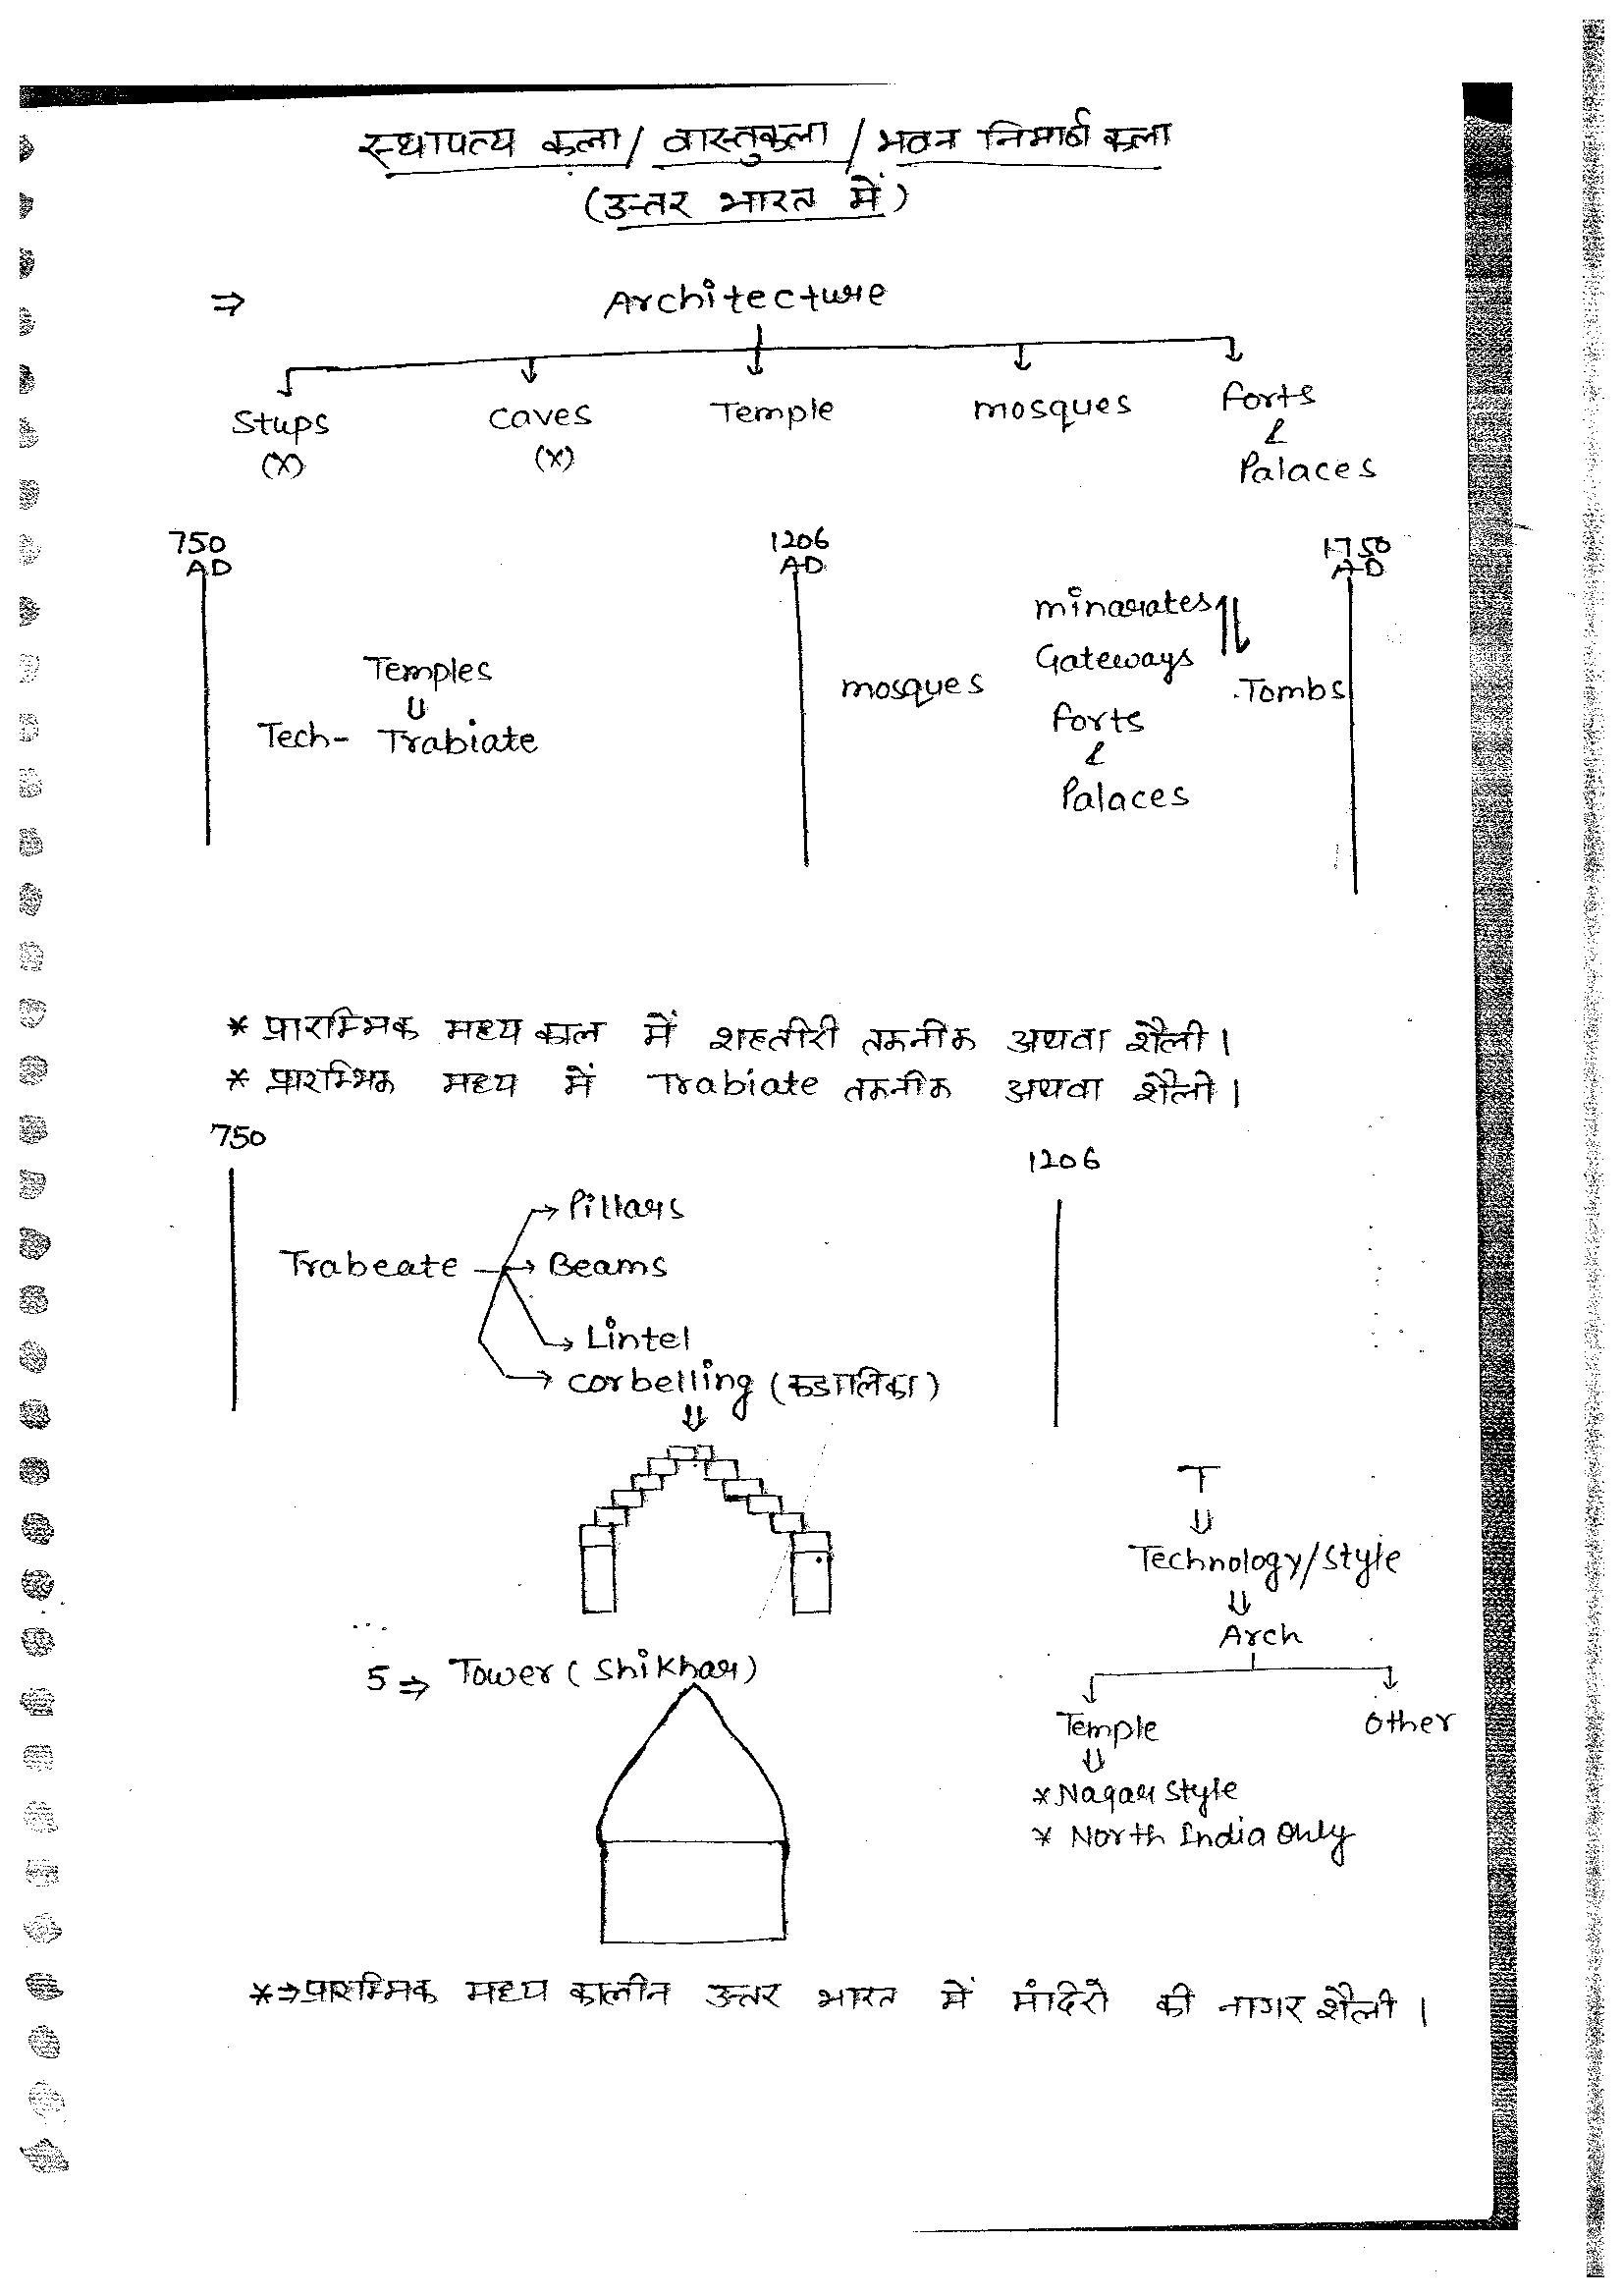 स्थापत्य कला / वास्तुकला / भवन निर्माण कला
(उत्तर भारत में)
⇒ Architecture
Stups Caves Temple mosques Forts
(X) (X) &
Palaces
750 AD 1206 AD 1750 AD
minarates
Gateways
Temples mosques Tombs
Forts
Tech- Trabiate &
Palaces
* प्रारम्भिक मध्य काल में शहतीरी तकनीक अथवा शैली।
* प्रारम्भिक मध्य में Trabiate तकनीक अथवा शैली।
750 1206
Pillars
Trabeate → Beams
→ Lintel
→ corbelling (कडालिका)
T
Technology/Style
Arch
5 ⇒ Tower (Shikhar)
Temple Other
* Nagar Style
* North India Only
*⇒ प्रारम्भिक मध्य कालीन उत्तर भारत में मंदिरो की नागर शैली।